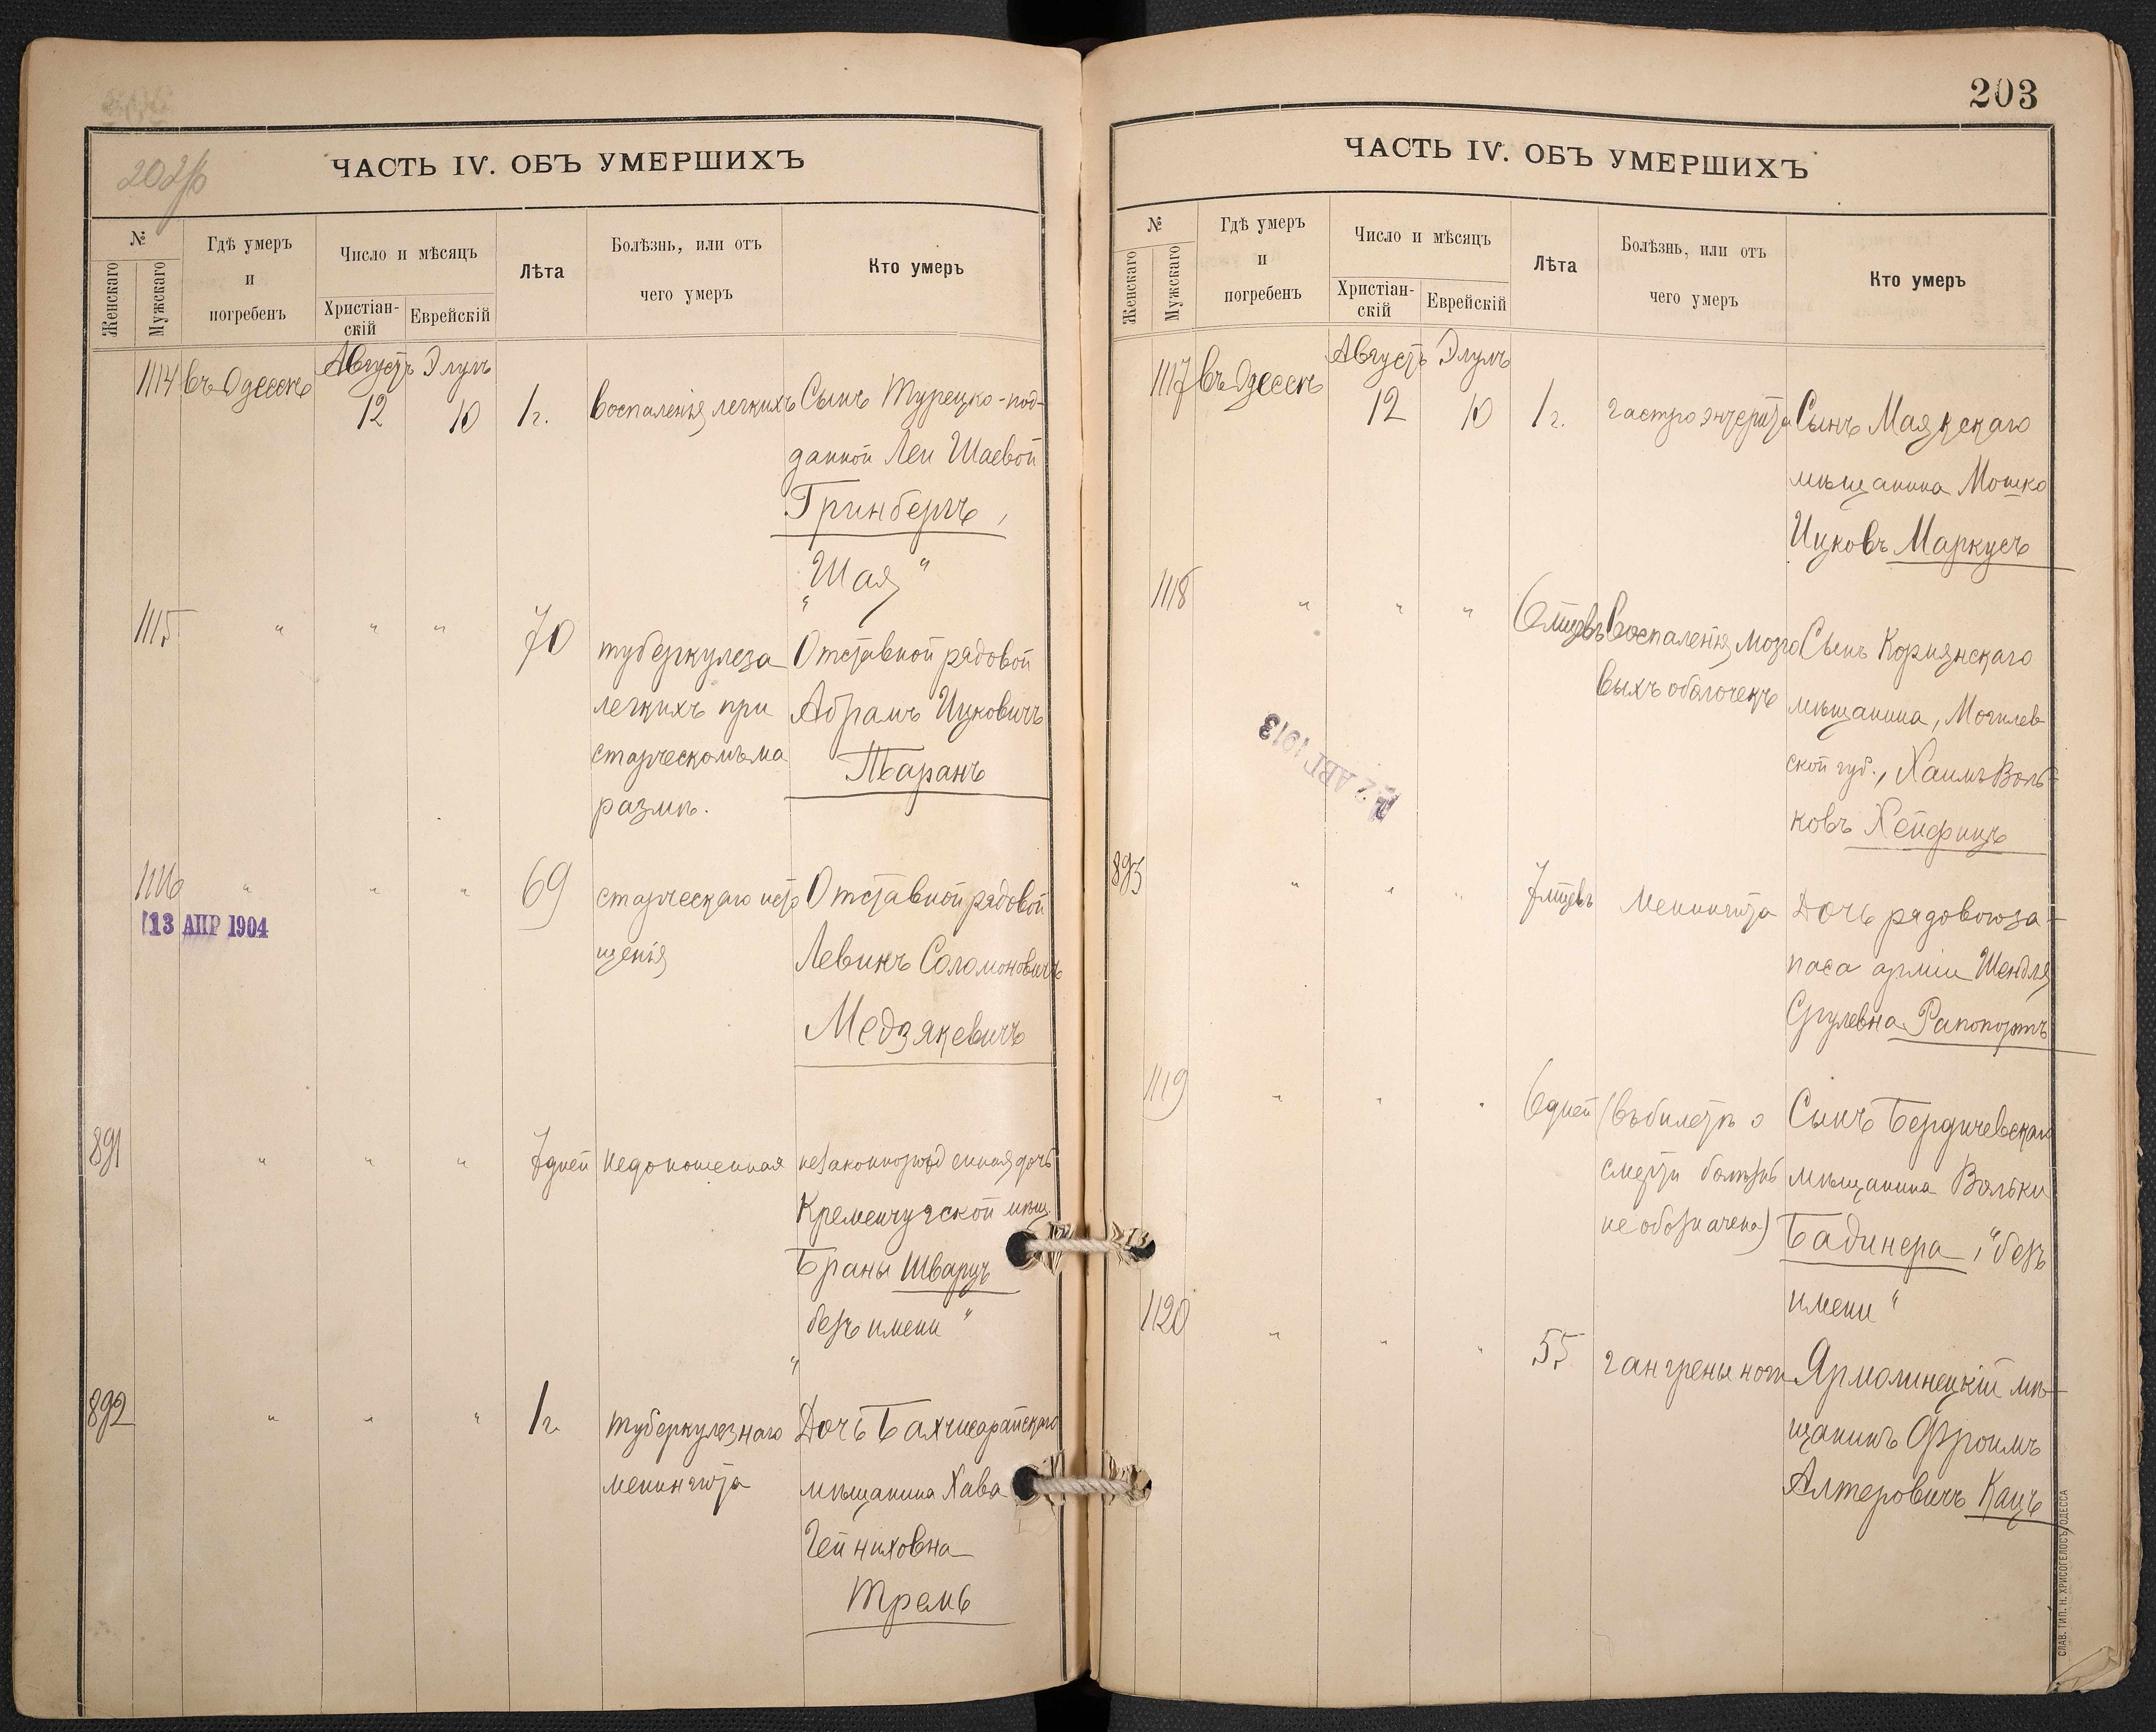 202/б
ЧАСТЬ IV. ОБЪ УМЕРШИХЪ
№
Женскаго
Мужскаго
Гдѣ умеръ
и
погребенъ
Число и мѣсяцъ
Христіан-
скій
Еврейскій
Лѣта
Болѣзнь, или отъ
чего умеръ
Кто умеръ
Августъ Элулъ
1114 въ Одессѣ 12 10 1 г. воспаленія легкихъ Сынъ Турецко-под-
данной Леи Шаевой
Гринбергъ,
"Шая"
1115 " " " 70 туберкулеза Отставной рядовой
легкихъ при Абрамъ Ицковичъ
старческомъ ма Таранъ
размѣ.
1116 " " " 69 старческаго исто Отставной рядовой
13 АПР 1904
щенія Левинъ Соломоновичъ
Медзякевичъ
891 " " " 7 дней недоношенная незаконнорожденная дочь
Кременчугской мѣщ.
Браны Шварцъ
"безъ имени"
892 " " " 1 г. туберкулезнаго Дочь Бахчисарайскаго
менингита мѣщанина Хава
Гейниховна
Тремъ
203
ЧАСТЬ IV. ОБЪ УМЕРШИХЪ
№
Женскаго
Мужскаго
Гдѣ умеръ
и
погребенъ
Число и мѣсяцъ
Христіан-
скій
Еврейскій
Лѣта
Болѣзнь, или отъ
чего умеръ
Кто умеръ
Августъ Элулъ
1117 въ Одессѣ 12 10 1 г. гастроэнтерита Сынъ Маякскаго
мѣщанина Мошко
Ицковъ Маркусъ
1118 " " " 6 мцевъ воспаленія мозго Сынъ Кормянскаго
выхъ оболочекъ мѣщанина, Могилев
ской губ., Хаимъ Воль-
ковъ Хейфицъ
22 АВГ 1913
893 " " " 7 мцевъ Менингита Дочь рядового за-
паса арміи Шендля
Срулевна Рапопортъ
1119 " " " 6 дней (въ билетѣ о Сынъ Бердичевскаго
смерти болѣзнь мѣщанина Вольки
не обозначена) Бадинера, "безъ
имени"
1120 " " " 55 гангрены ноги Ярмолинецкій мѣ-
щанинъ Фроимъ
Алтеровичъ Кацъ
СЛАВ. ТИП. Н. ХРИСОГЕЛОСЪ, ОДЕССА